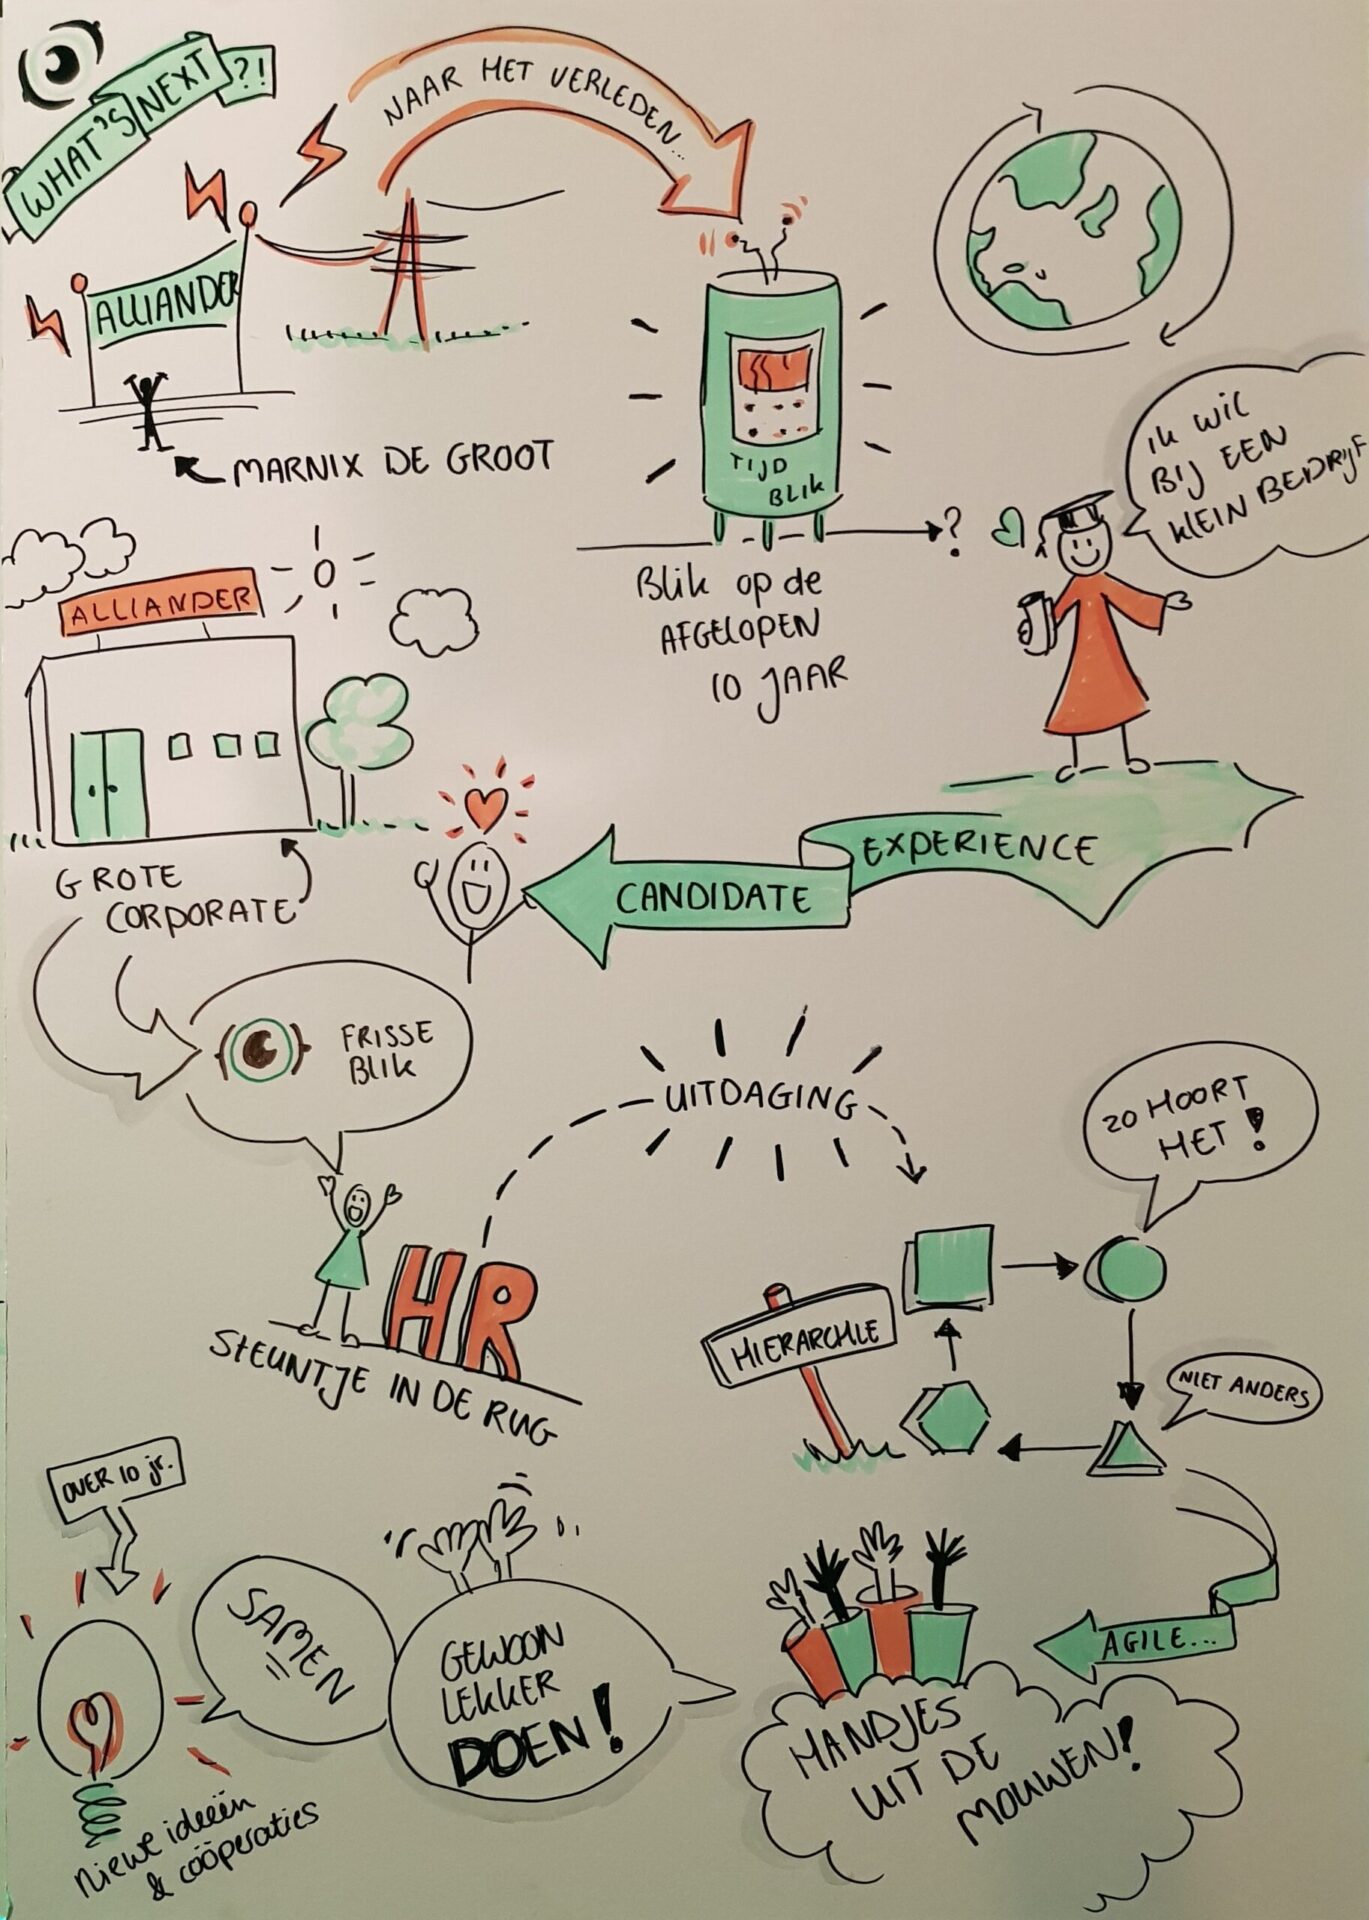 WHAT'S NEXT ?!
NAAR HET VERLEDEN...
ALLIANDER
MARNIX DE GROOT
TIJD
BLIK
?
BLIK OP DE
AFGELOPEN
10 JAAR
IK WIL
BIJ EEN
KLEIN BEDRIJF
ALLIANDER
GROTE
CORPORATE
CANDIDATE EXPERIENCE
FRISSE
BLIK
UITDAGING
ZO HOORT
HET!
HR
STEUNTJE IN DE RUG
HIERARCHIE
NIET ANDERS
OVER 10 jr.
SAMEN
GEWOON
LEKKER
DOEN!
AGILE...
HANDJES
UIT DE
MOUWEN!
niewe ideeën
& coöperaties